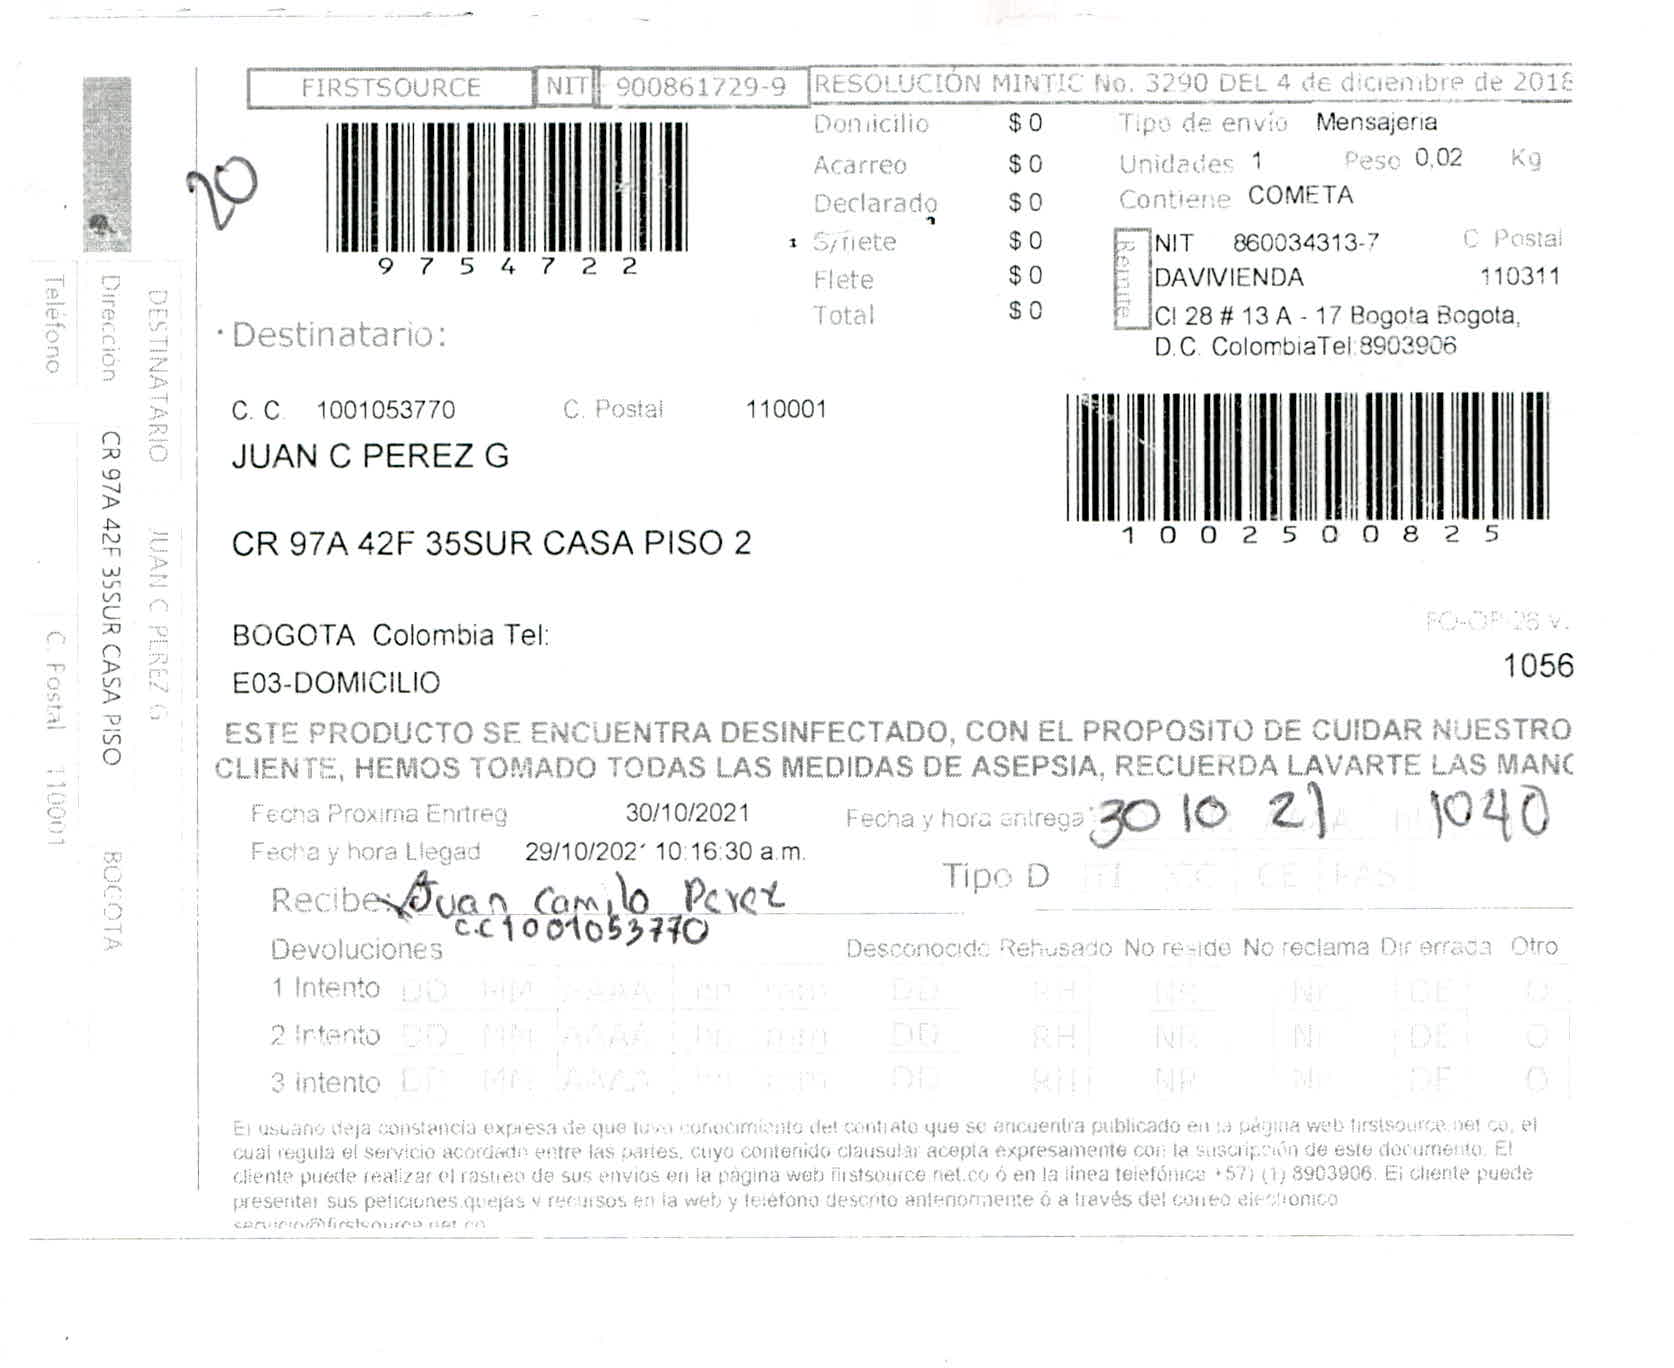 FIRSTSOURCE NIT 900861729-9 RESOLUCIÓN MINTIC No. 3290 DEL 4 de diciembre de 2018
20
9754722
Domicilio $ 0
Acarreo $ 0
Declarado $ 0
S/flete $ 0
Flete $ 0
Total $ 0
Tipo de envío Mensajeria
Unidades 1 Peso 0,02 Kg
Contiene COMETA
Remite
NIT 860034313-7 C Postal
DAVIVIENDA 110311
Cl 28 # 13 A - 17 Bogota Bogota,
D.C. ColombiaTel:8903906
Destinatario:
C. C. 1001053770 C. Postal 110001
JUAN C PEREZ G
1002500825
CR 97A 42F 35SUR CASA PISO 2
BOGOTA Colombia Tel:
FO-OP-26 v.
E03-DOMICILIO
1056
ESTE PRODUCTO SE ENCUENTRA DESINFECTADO, CON EL PROPOSITO DE CUIDAR NUESTRO
CLIENTE, HEMOS TOMADO TODAS LAS MEDIDAS DE ASEPSIA, RECUERDA LAVARTE LAS MANO
Fecha Proxima Entreg 30/10/2021 Fecha y hora entrega 30 10 21 1040
Fecha y hora Llegad 29/10/202' 10:16:30 a.m.
Tipo D TI CC CE PAS
Recibe: Juan Camilo Perez
C.C 1001053770
Devoluciones Desconocido Rehusado No reside No reclama Dir errada Otro
1 Intento DD MM AAAA hh mm DD RH NR NR DE O
2 Intento DD MM AAAA hh mm DD RH NR NR DE O
3 intento DD MM AAAA hh mm DD RH NR NR DE O
El usuario deja constancia expresa de que tuvo conocimiento del contrato que se encuentra publicado en la página web firstsource.net.co, el
cual regula el servicio acordado entre las partes, cuyo contenido clausular acepta expresamente con la suscripción de este documento. El
cliente puede realizar el rastreo de sus envios en la página web firstsource.net.co ó en la línea telefónica +57) (1) 8903906. El cliente puede
presentar sus peticiones,quejas y recursos en la web y teléfono descrito anteriormente ó a través del correo electronico
servicio@firstsource.net.co
DESTINATARIO JUAN C PEREZ G
Dirección CR 97A 42F 35SUR CASA PISO BOGOTA
Teléfono C. Postal 110001